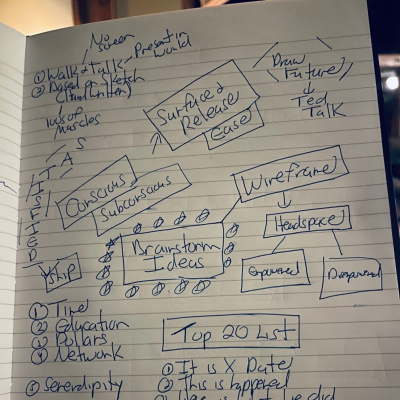 No
screen
Present in
World
① Walk & Talk
② Based Sketch
100s of
Muscles
Surface &
Release
Ease
Draw
Future
Ted
Talk
SATISFIED
Conscious
Subconscious
Wireframe
Headspace
Empowered
Disempowered
Brainstorm
Ideas
Ship
① Time
② Education
③ Dollars
④ Network
⑤ Serendipity
Top 20 List
① It is X Date
② This is happened